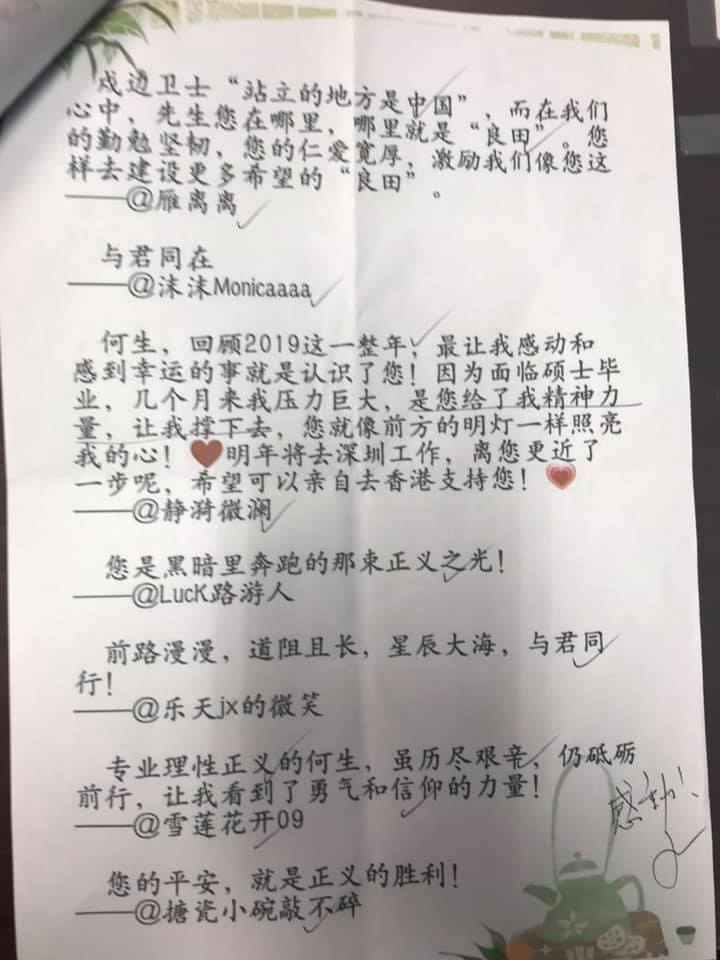 戍边卫士“站立的地方是中国”，而在我们
心中，先生您在哪里，哪里就是“良田”。您
的勤勉坚韧，您的仁爱宽厚，激励我们像您这
样去建设更多希望的“良田”。
——@雁离离
与君同在
——@沫沫Monicaaaa
何生，回顾2019这一整年，最让我感动和
感到幸运的事就是认识了您！因为面临硕士毕
业，几个月来我压力巨大，是您给了我精神力
量，让我撑下去，您就像前方的明灯一样照亮
我的心！❤明年将去深圳工作，离您更近了
一步呢，希望可以亲自去香港支持您！💗
——@静漪微澜
您是黑暗里奔跑的那束正义之光！
——@LucK路游人
前路漫漫，道阻且长，星辰大海，与君同
行！
——@乐天jx的微笑
专业理性正义的何生，虽历尽艰辛，仍砥砺
前行，让我看到了勇气和信仰的力量！
——@雪莲花开09
感谢！
您的平安，就是正义的胜利！
——@搪瓷小碗敲不碎